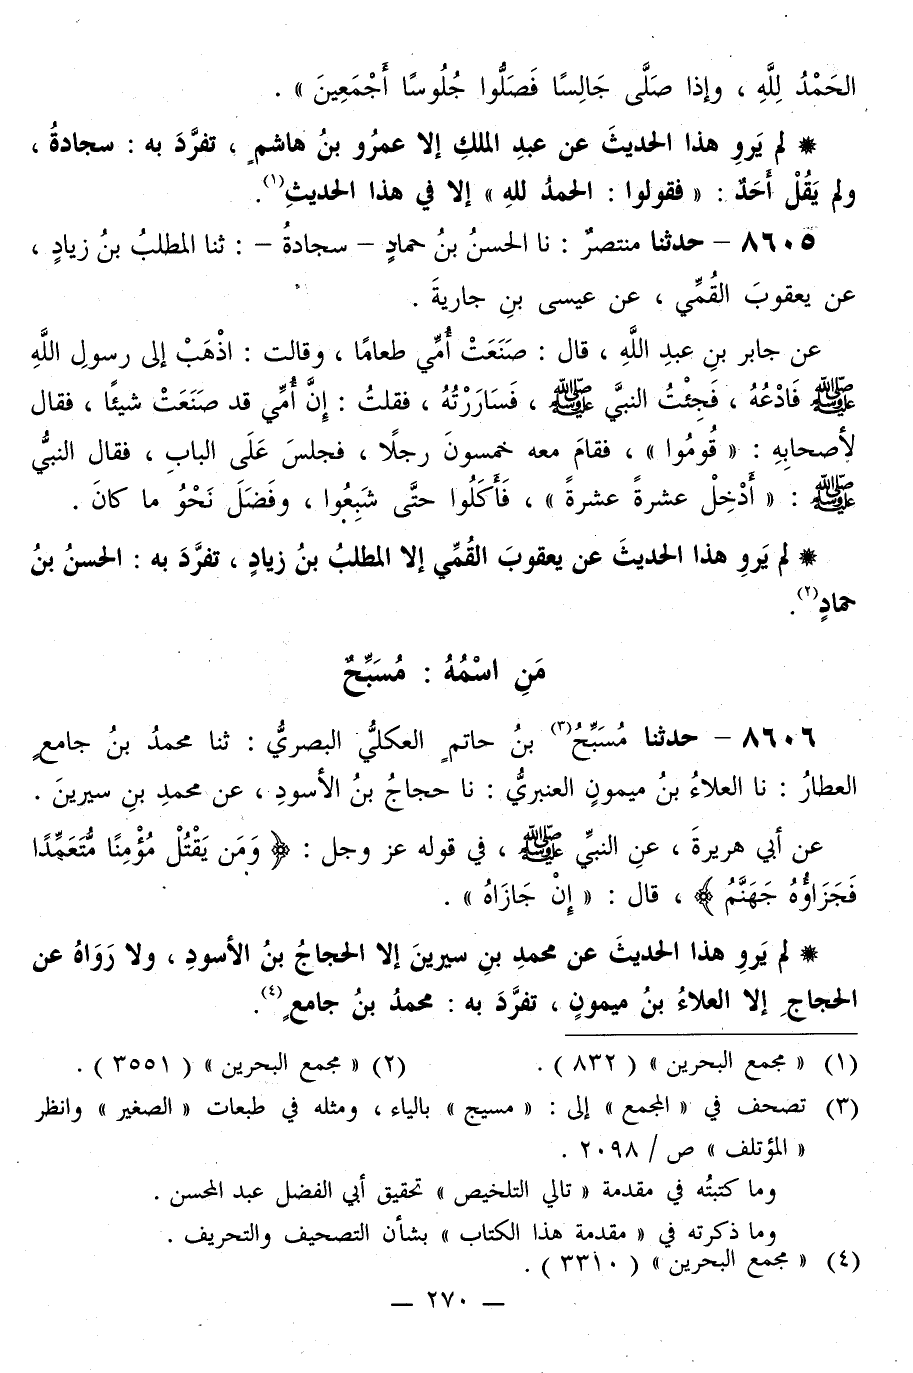 الحَمْدُ لِلَّهِ ، وإذا صَلَّى جَالِسًا فَصَلُّوا جُلُوسًا أَجْمَعِينَ » .
* لم يَروِ هذا الحديثَ عن عبدِ الملكِ إلا عمرُو بنُ هاشمٍ ، تفرَّدَ به : سجادةُ ،
ولم يَقُلْ أَحَدٌ : « فقولوا : الحمدُ للهِ » إلا في هذا الحديثِ(١).
٨٦٠٥ – حدثنا منتصرٌ : نا الحسنُ بنُ حمادٍ – سجادةُ – : ثنا المطلبُ بنُ زيادٍ ،
عن يعقوبَ القُمِّي ، عن عيسى بنِ جاريةَ .
عن جابر بنِ عبدِ اللَّهِ ، قال : صَنَعَتْ أُمِّي طعامًا ، وقالت : اذْهَبْ إلى رسولِ اللَّهِ
ﷺ فَادْعُهُ ، فَجِئْتُ النبيَّ ﷺ ، فَسَارَرْتُهُ ، فقلتُ : إِنَّ أُمِّي قد صَنَعَتْ شيئًا ، فقال
لأصحابِهِ : « قُومُوا » ، فقامَ معه خمسونَ رجلًا ، فجلسَ عَلَى البابِ ، فقال النبيُّ
ﷺ : « أَدْخِلْ عشرةً عشرةً » ، فَأَكَلُوا حتَّى شَبِعُوا ، وفَضَلَ نَحْوُ ما كانَ .
* لم يَروِ هذا الحديثَ عن يعقوبَ القُمِّي إلا المطلبُ بنُ زيادٍ ، تفرَّدَ به : الحسنُ بنُ
حمادٍ(٢).
مَنِ اسْمُهُ : مُسَبِّحٌ
٨٦٠٦ – حدثنا مُسَبِّحُ(٣) بنُ حاتمٍ العكليُّ البصريُّ : ثنا محمدُ بنُ جامعٍ
العطارُ : نا العلاءُ بنُ ميمونٍ العنبريُّ : نا حجاجُ بنُ الأسودِ ، عن محمدِ بنِ سيرينَ .
عن أبي هريرةَ ، عنِ النبيِّ ﷺ ، في قوله عز وجل : ﴿ وَمَن يَقْتُلْ مُؤْمِنًا مُّتَعَمِّدًا
فَجَزَاؤُهُ جَهَنَّمُ ﴾ ، قال : « إِنْ جَازَاهُ » .
* لم يَروِ هذا الحديثَ عن محمدِ بنِ سيرينَ إلا الحجاجُ بنُ الأسودِ ، ولا رَوَاهُ عن
الحجاجِ إلا العلاءُ بنُ ميمونٍ ، تفرَّدَ به : محمدُ بنُ جامعٍ(٤).
(١) « مجمع البحرين » ( ٨٣٢ ) . (٢) « مجمع البحرين » ( ٣٥٥١ ) .
(٣) تصحف في « المجمع » إلى : « مسيح » بالياء ، ومثله في طبعات « الصغير » وانظر
« المؤتلف » ص / ٢٠٩٨ .
وما كتبتُه في مقدمة « تالي التلخيص » تحقيق أبي الفضل عبد المحسن .
وما ذكرته في « مقدمة هذا الكتاب » بشأن التصحيف والتحريف .
(٤) « مجمع البحرين » ( ٣٣١٠ ) .
— ٢٧٠ —